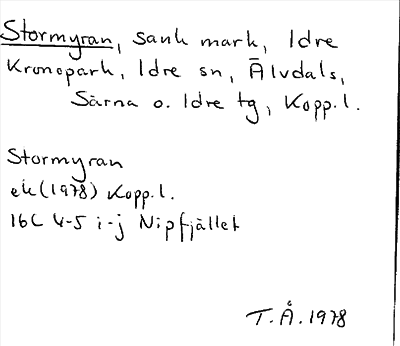 Stormyran, sank mark, Idre
Kronopark, Idre sn, Älvdals,
Särna o. Idre tg, Kopp.l.
Stormyran
ek (1978) Kopp.l.
16C 4-5 i-j Nipfjället
T.Å. 1978